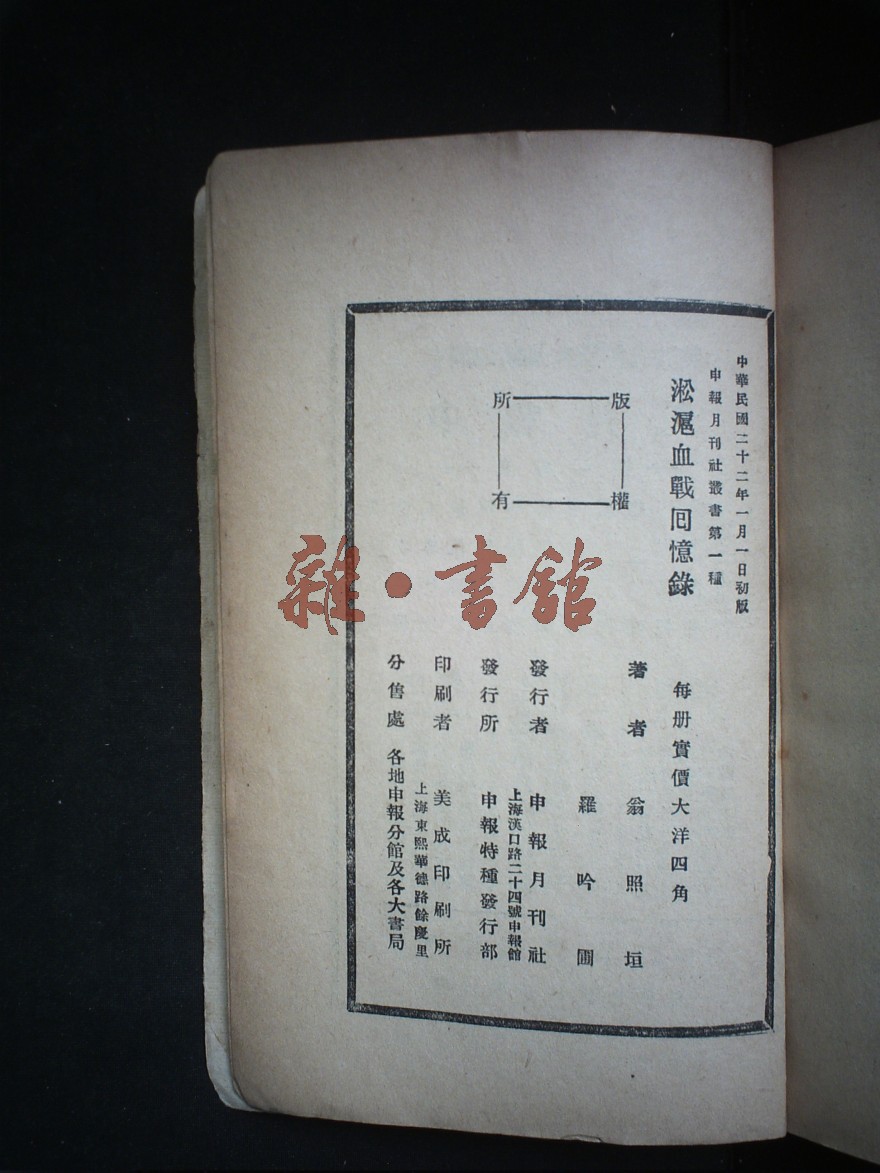 中華民國二十二年一月一日初版
申報月刊社叢書第一種
淞滬血戰回憶錄
每册實價大洋四角
版權所有
著者 翁照垣
羅吟圃
發行者 申報月刊社
上海漢口路二十四號申報館
發行所 申報特種發行部
印刷者 美成印刷所
上海東熙華德路餘慶里
分售處 各地申報分館及各大書局
雜·書館